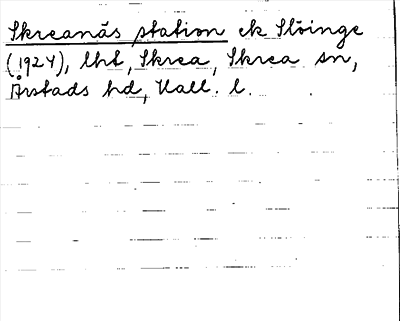 Skreanäs station ek Slöinge
(1924), lht, Skrea, Skrea sn,
Årstads hd, Hall. l.